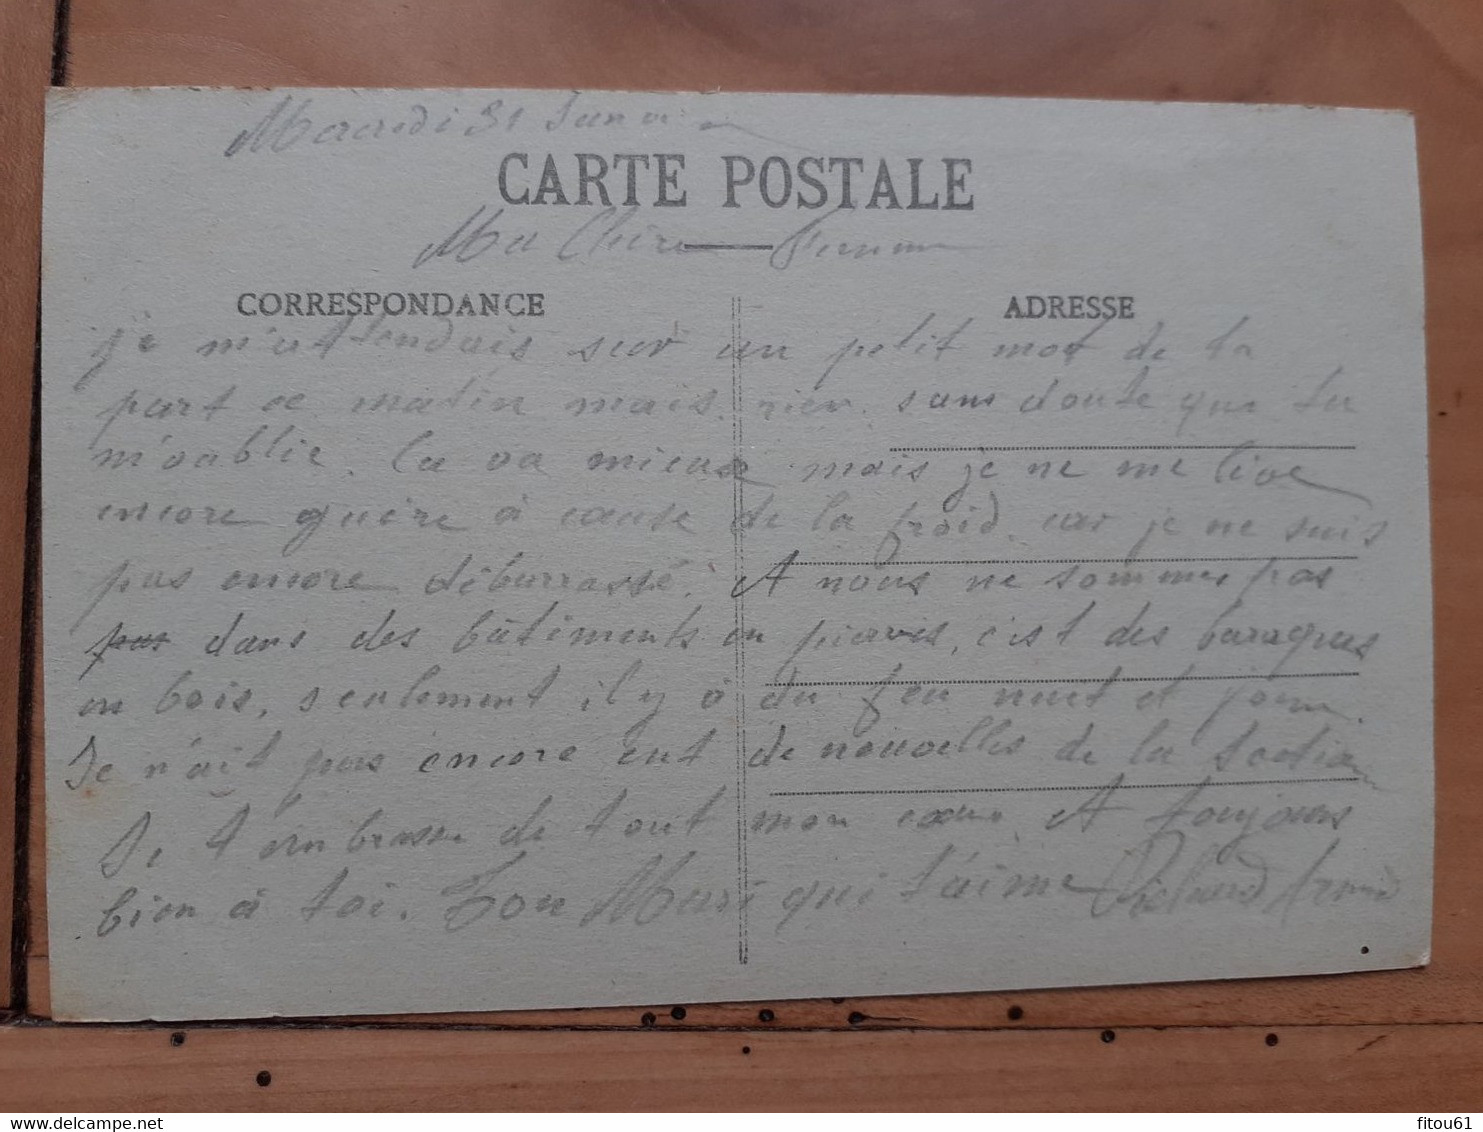 Mercredi 31 Janvi
CARTE POSTALE
Ma Chère Femme
CORRESPONDANCE
ADRESSE
je m'attendais sur un petit mot de ta
part ce matin mais rien. sans doute que tu
m'oublie. Ca va mieux mais je ne me live
encore guère à cause de la froid. car je ne suis
pas encore débarrassé. A nous ne sommes pas
pas dans des bâtiments en pierres, c'est des baraques
en bois, seulement il y à du feu nuit et jour.
Je n'ait pas encore eut de nouvelles de la
Je t'embrasse de tout mon coeur A toujours
bien à toi. Ton Mari qui t'aime Richard
delcampe.net
fitou61